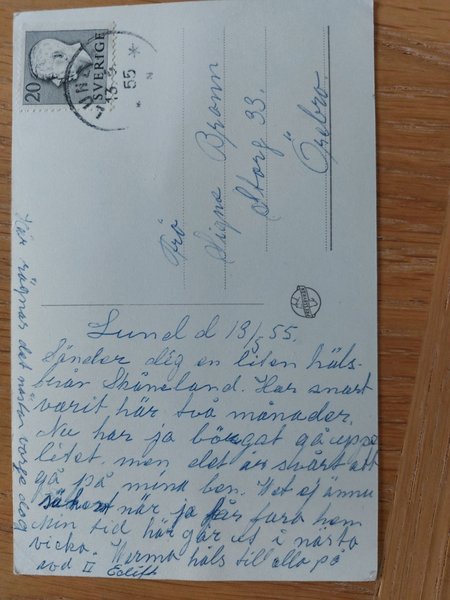 20
SVERIGE
LUND
13 5
55
Frö
Signe Bromn
Storg 33.
Örebro.
Lund d 13/5 55.
Sänder dig en liten häls-
från Skåneland. Har snart
varit här två månader.
Nu har ja börgat gå uppe
litet, men det är svårt att
gå på mina ben. Vet ej ännu
säkert när ja får fara hem
Min tid här går ut i nästa
vicka. Varma häls till alla på
avd II Edith
Här rägnas det nästan varje dag